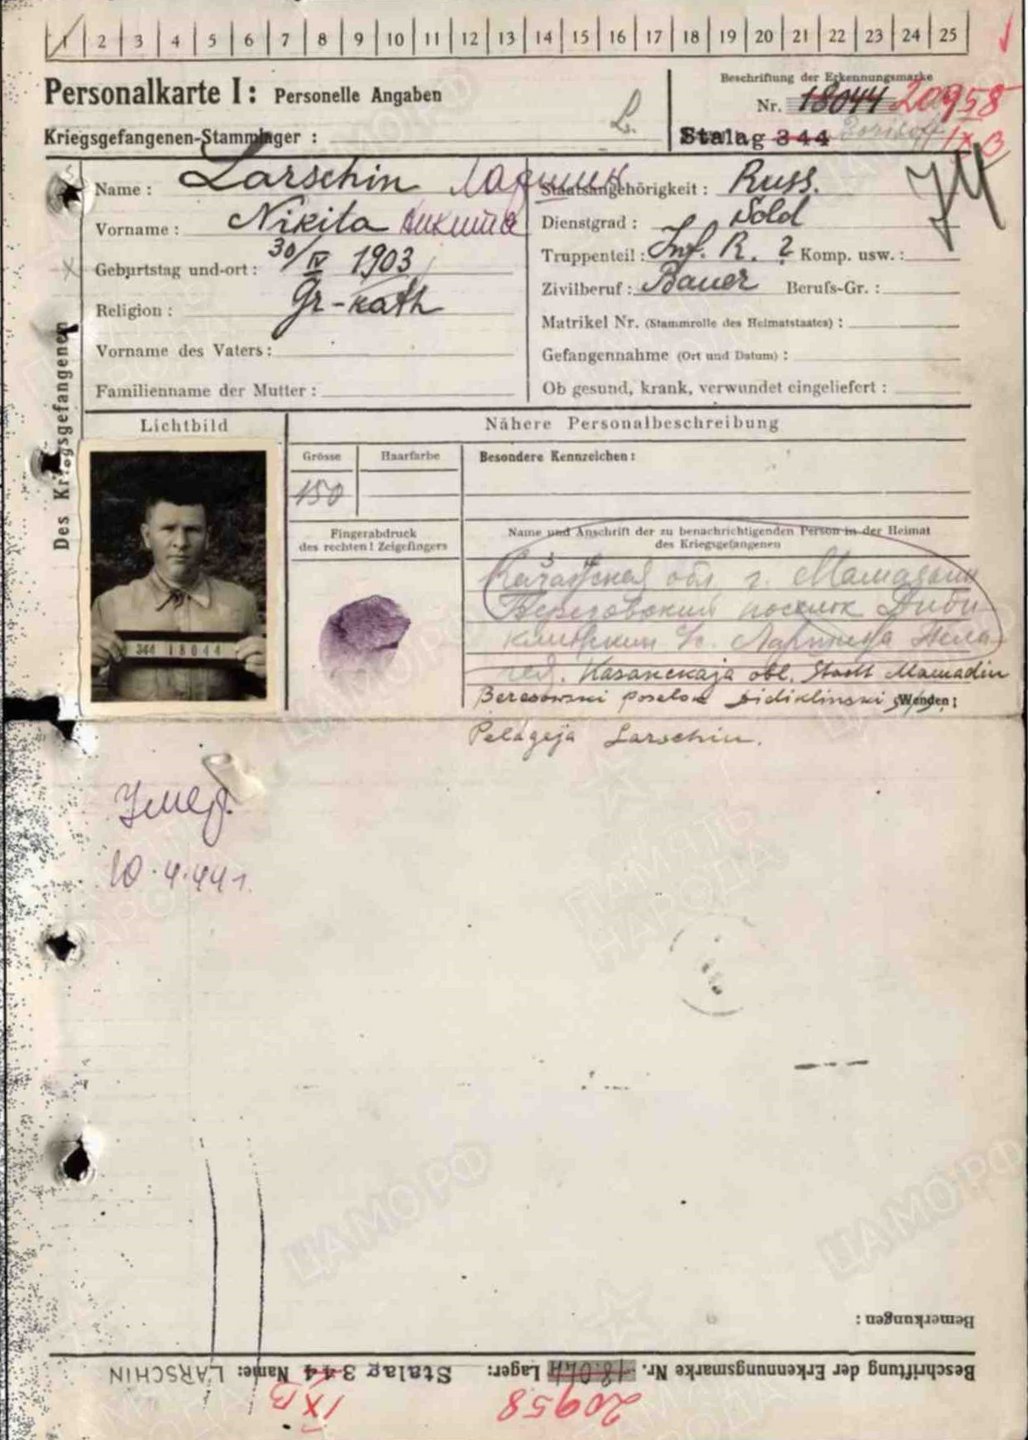 1 2 3 4 5 6 7 8 9 10 11 12 13 14 15 16 17 18 19 20 21 22 23 24 25
Personalkarte I: Personelle Angaben
Beschriftung der Erkennungsmarke
Nr. 18044 20958
Kriegsgefangenen-Stammlager :
Stalag 344 IX B
Des Kriegsgefangenen
Name : Larschin Ларшин
Vorname : Nikita Никита
Geburtstag und-ort : 30/IV 1903
Religion : Gr-kath
Vorname des Vaters :
Familienname der Mutter :
Staatsangehörigkeit : Russ.
Dienstgrad : Sold
Truppenteil : Inf. R. ? Komp. usw. :
Zivilberuf : Bauer Berufs-Gr. :
Matrikel Nr. (Stammrolle des Heimatstaates) :
Gefangennahme (Ort und Datum) :
Ob gesund, krank, verwundet eingeliefert :
Lichtbild
Nähere Personalbeschreibung
Grösse
Haarfarbe
Besondere Kennzeichen :
150
Fingerabdruck
des rechten ! Zeigefingers
Name und Anschrift der zu benachrichtigenden Person in der Heimat
des Kriegsgefangenen
344 18044
обл. г. Мамадыш
Березовский поселок
Kasanskaja obl. Stadt Mamadin
Beresowski poselok Didiklinski Wenden !
Pelageja Larschin.
Умер.
10.4.44 г.
ПАМЯТЬ НАРОДА
ЦАМО.РФ
Bemerkungen :
Beschriftung der Erkennungsmarke Nr. 18044 Lager: Stalag 344 Name: LARSCHIN
20958 IX B